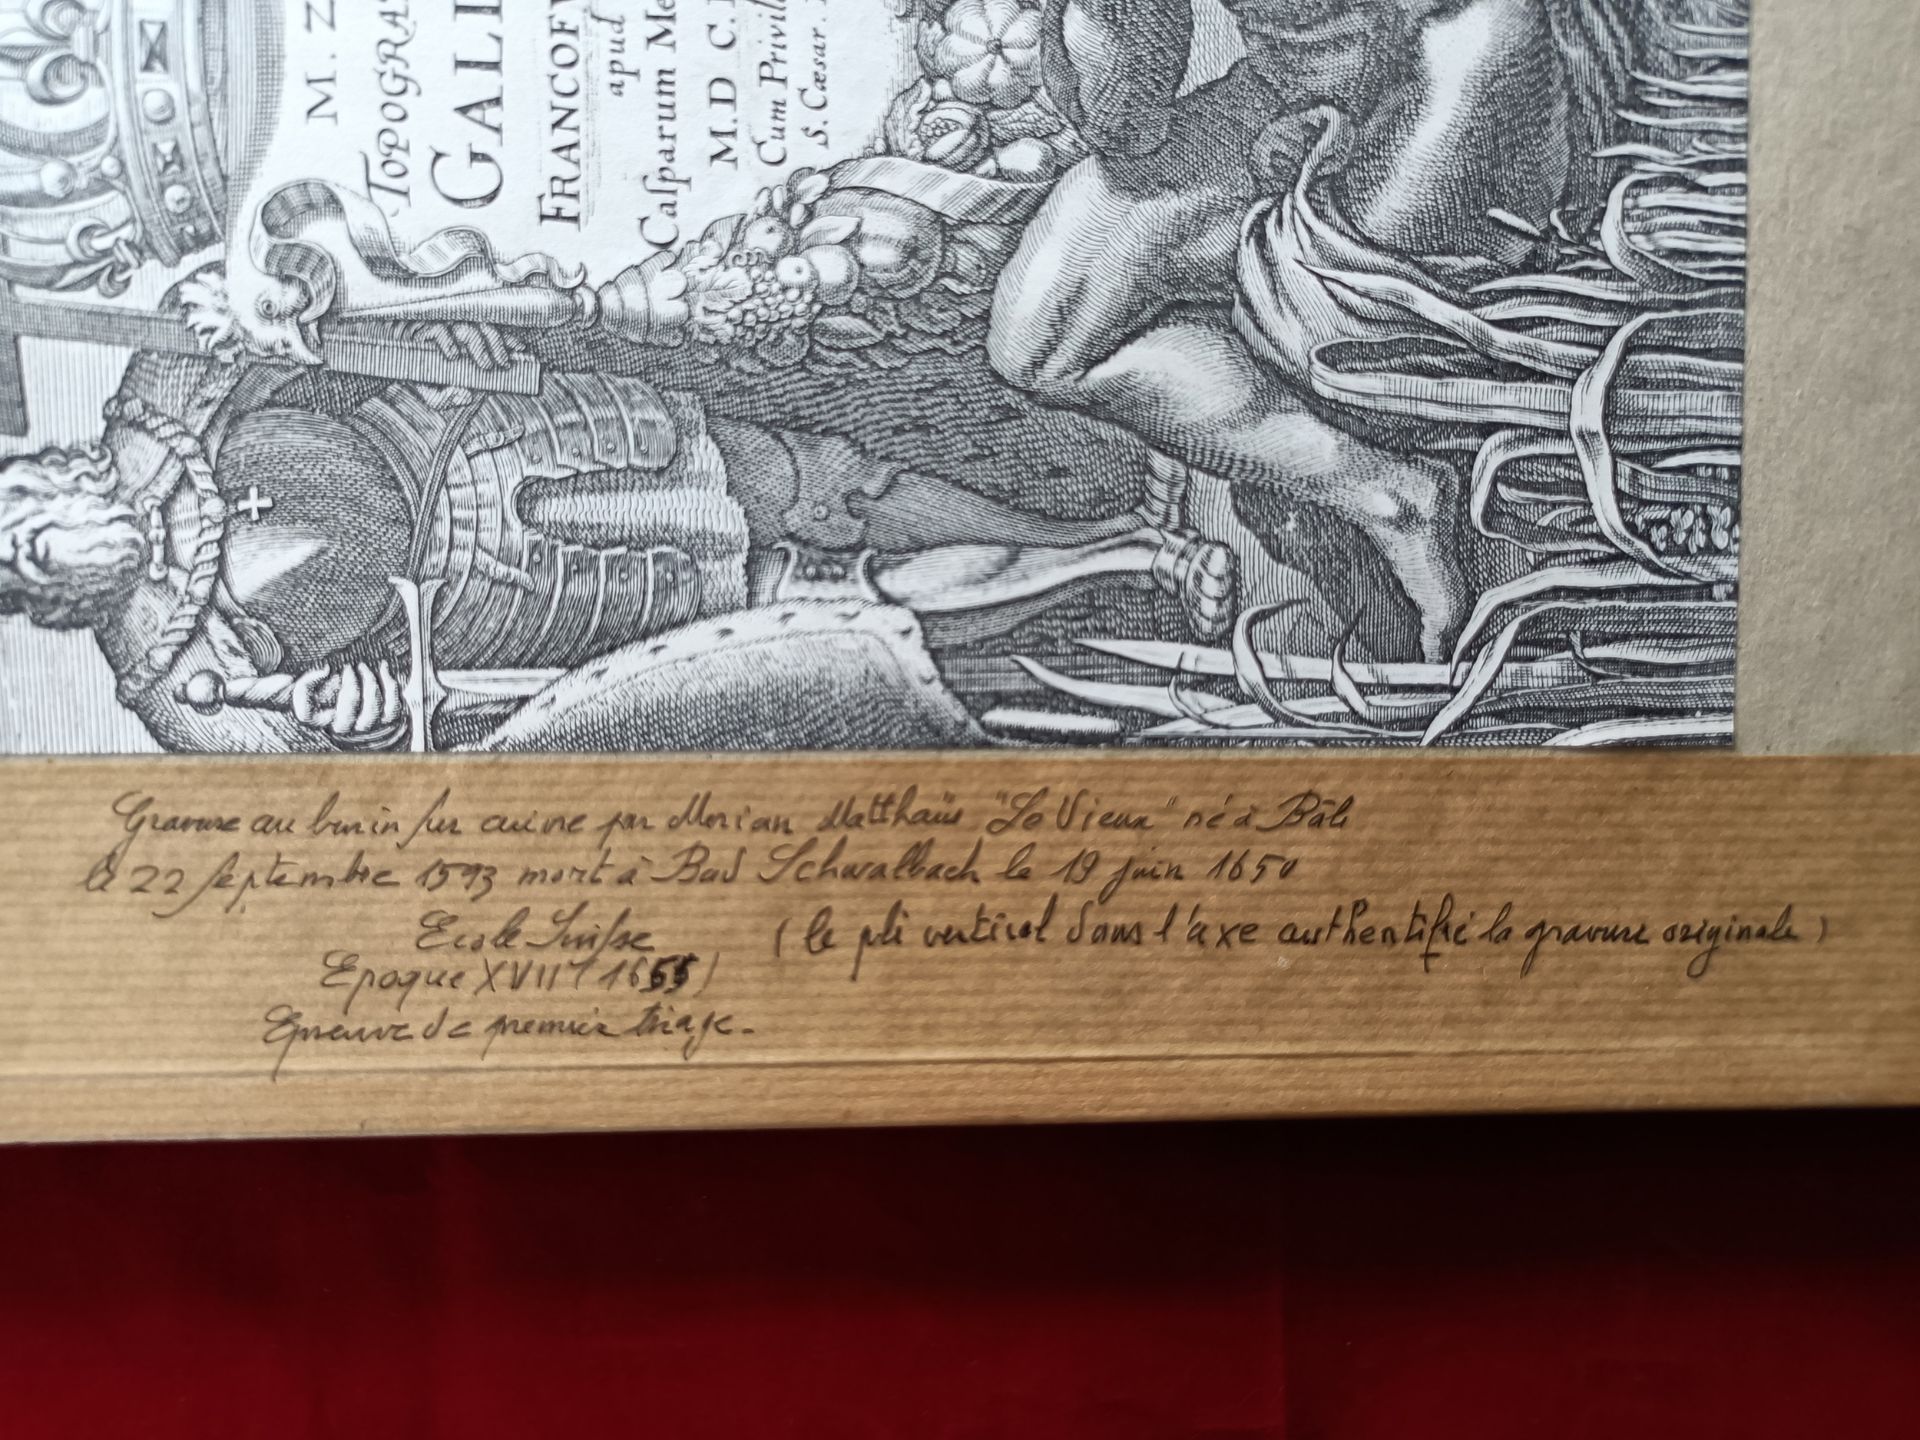 M. Z
TOPOGRA
GALI
FRANCOF
apud
Casparum Me
M.D C.
Cum Privil
S. Cæsar.
Gravure au burin sur cuivre par Merian Matthaüs "Le Vieux" né à Bâle
le 22 septembre 1593 mort à Bad Schwalbach le 19 juin 1650
Ecole Suisse (le pli vertical dans l'axe authentifie la gravure originale)
Epoque XVII (1655)
Epreuve de premier tirage.